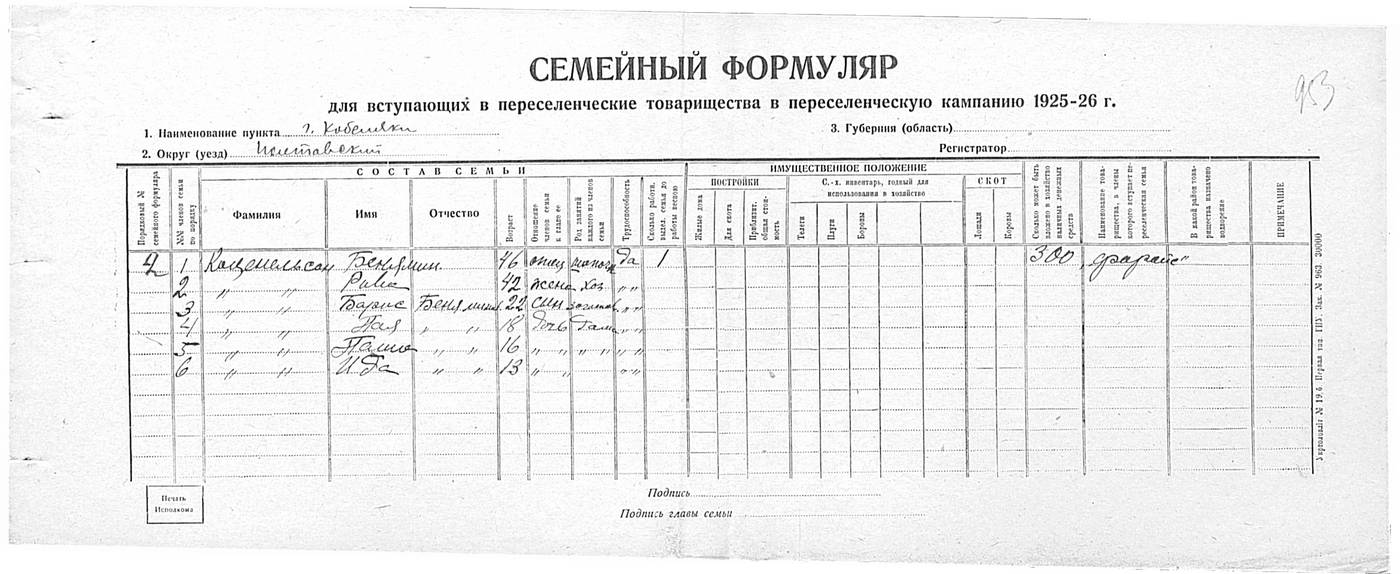 СЕМЕЙНЫЙ ФОРМУЛЯР
953
для вступающих в переселенческие товарищества в переселенческую кампанию 1925-26 г.
1. Наименование пункта г. Кобеляки
3. Губерния (область)
2. Округ (уезд) Полтавский
Регистратор
Порядковый № семейного формуляра
№№ членов семьи по порядку
СОСТАВ СЕМЬИ
Фамилия
Имя
Отчество
Возраст
Отношение членов семьи к главе ее
Род занятий каждого из членов семьи
Трудоспособность
Сколько работн. выдел. семья до работы весною
ИМУЩЕСТВЕННОЕ ПОЛОЖЕНИЕ
ПОСТРОЙКИ
Жилые дома
Для скота
Приблизит. общая стоимость
С.-х. инвентарь, годный для использования в хозяйстве
Телеги
Плуги
Бороны
СКОТ
Лошади
Коровы
Сколько может быть вложено в хозяйство наличных денежных средств
Наименование товарищества, в члены которого вступает переселенческая семья
В какой район товарищества назначено водворение
ПРИМЕЧАНИЕ
1 Каценельсон Бенямин. 46 отец да 1 300
2 " " Рива 42 жена хоз. " "
3 " " Барис Бенямин. 22 сын " "
4 " " 18 дочь дома " "
5 " " " " 16 " " " " " "
6 " " Ида " " 13 " " " "
Печать Исполкома
Подпись
Подпись главы семьи
Укрголовліт № 19.6. Первая тип. ГПУ. Зак. № 963 30000